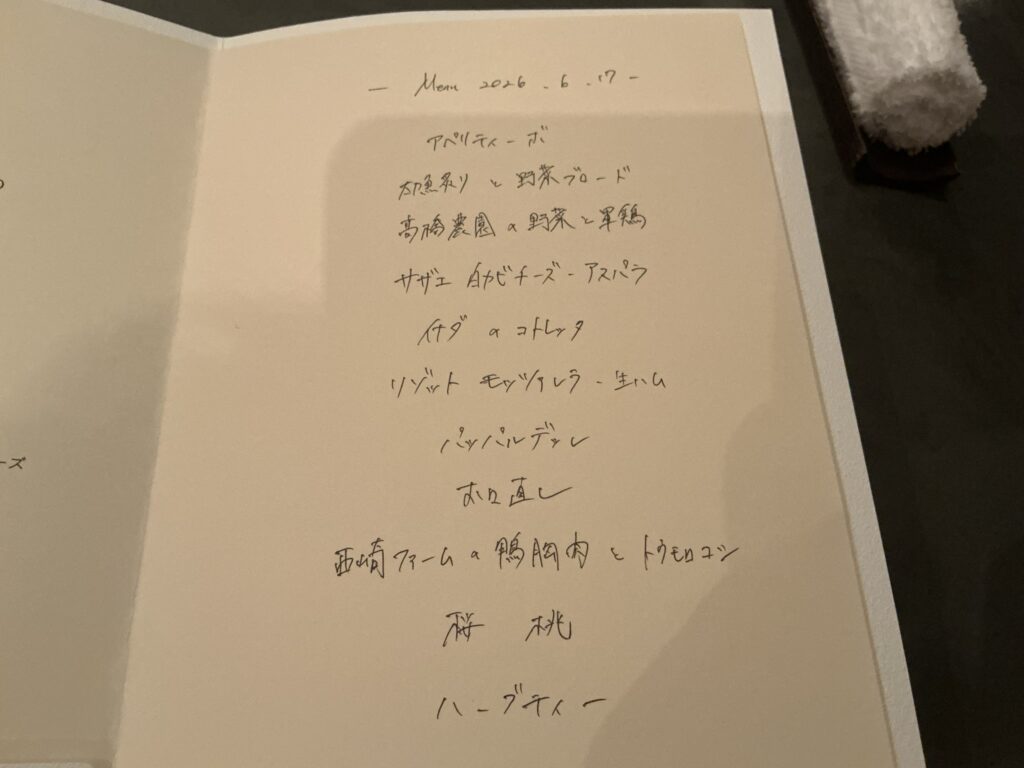 — Menu 2026.6.17 —
アペリティーボ
太刀魚炙り と 野菜ブロード
高橋農園の野菜と軍鶏
サザエ 白カビチーズ - アスパラ
イナダ の コトレッタ
リゾット モッツァレラ - 生ハム
パッパルデッレ
お口直し
西崎ファームの鴨胸肉とトウモロコシ
桜 桃
ハーブティー
ーズ